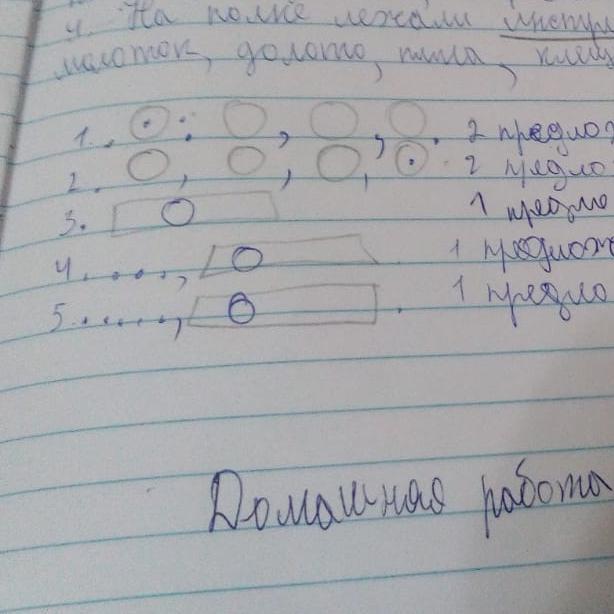 4. На полке лежали инстру
молоток, долото, пила, клещ
1. : , , . 2 предлож
2. , , , . 2 предло
3. 1 предло
4. . . . . , 1 предлож
5. . . . . . , . 1 предло
Домашная работа